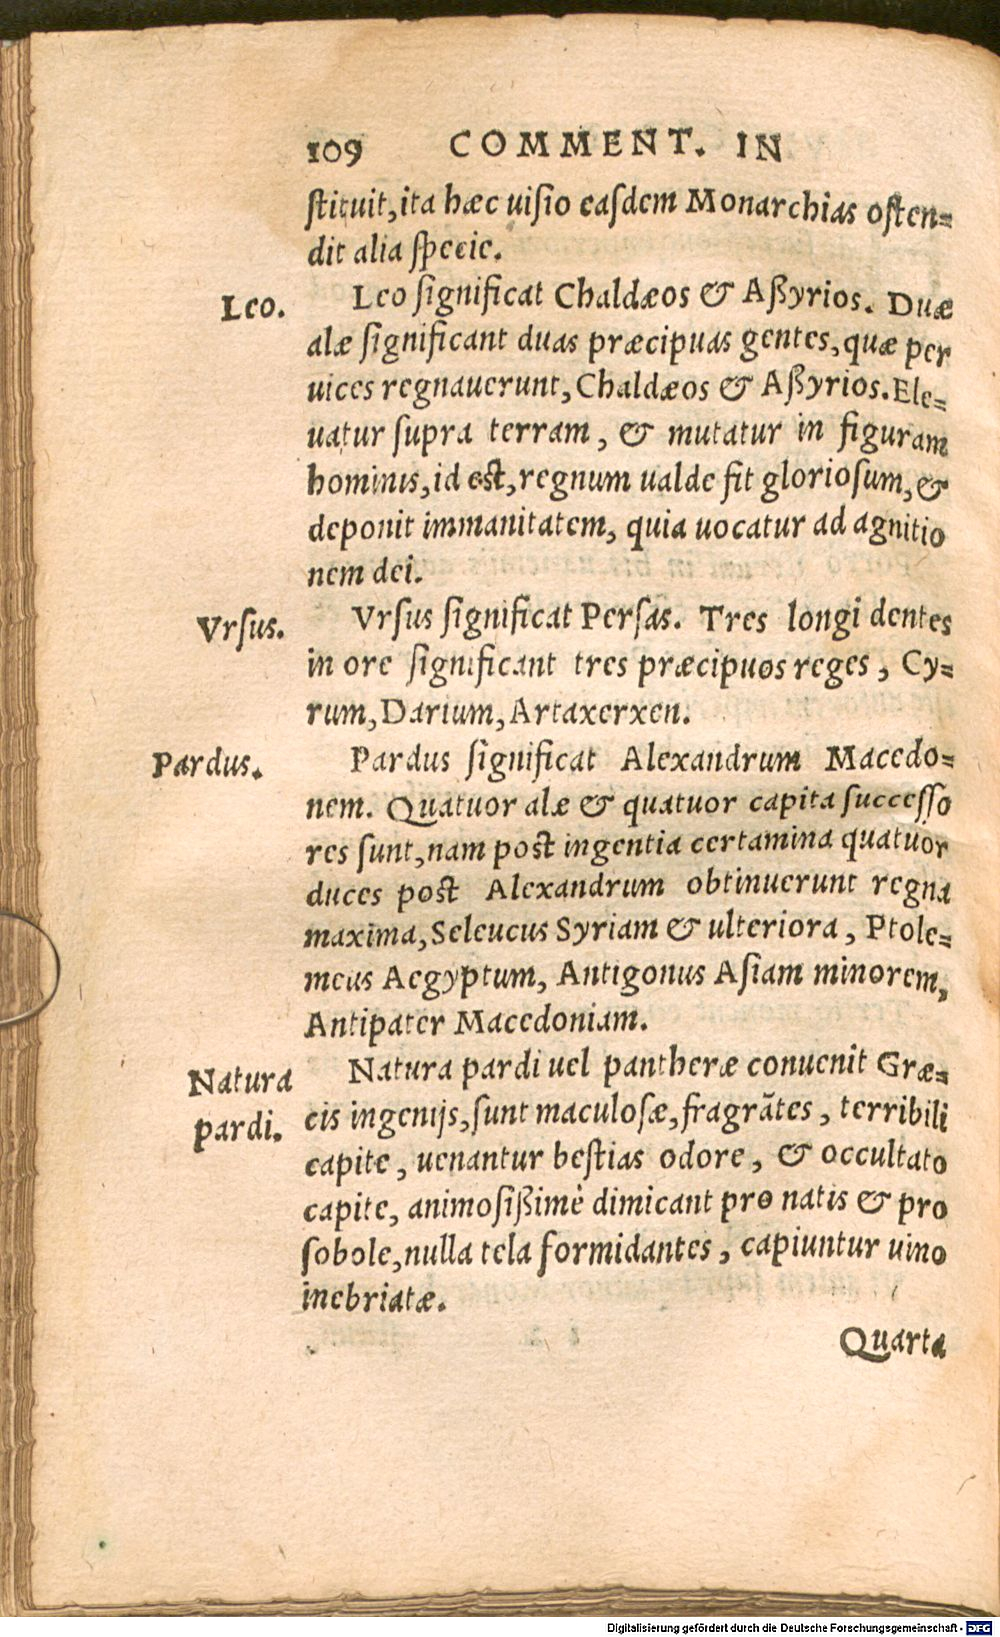 109 COMMENT. IN
ſtituit, ita hæc uiſio eaſdem Monarchias oſten=
dit alia ſpecie.
Leo.
Leo ſignificat Chaldæos & Aßyrios. Duæ
alæ ſignificant duas præcipuas gentes, quæ per
uices regnauerunt, Chaldæos & Aßyrios. Ele=
uatur ſupra terram, & mutatur in figuram
hominis, id est, regnum ualde fit glorioſum, &
deponit immanitatem, quia uocatur ad agnitio
nem dei.
Vrſus.
Vrſus ſignificat Perſas. Tres longi dentes
in ore ſignificant tres præcipuos reges, Cy=
rum, Darium, Artaxerxen.
Pardus.
Pardus ſignificat Alexandrum Macedo=
nem. Quatuor alæ & quatuor capita ſucceſſo
res ſunt, nam post ingentia certamina quatuor
duces post Alexandrum obtinuerunt regna
maxima, Seleucus Syriam & ulteriora, Ptole=
meus Aegyptum, Antigonus Aſiam minorem,
Antipater Macedoniam.
Natura
pardi.
Natura pardi uel pantheræ conuenit Græ=
cis ingenijs, ſunt maculoſæ, fragrãtes, terribili
capite, uenantur beſtias odore, & occultato
capite, animoſißimè dimicant pro natis & pro
ſobole, nulla tela formidantes, capiuntur uino
inebriatæ.
Quarta
Digitalisierung gefördert durch die Deutsche Forschungsgemeinschaft - DFG